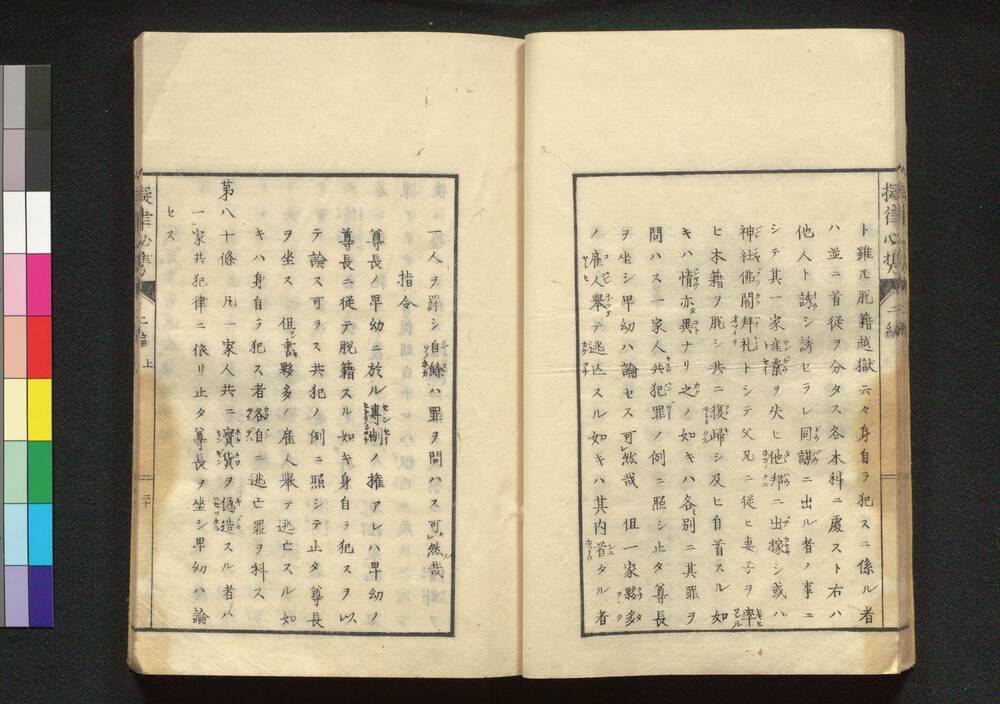 ト雖モ脱籍越獄云々身自ラ犯スニ係ル者
ハ並ニ首從ヲ分タス各本科ニ處スト右ハ
他人ト誘シ誘ヒラレ同謀ニ出ル者ノ事ニ
シテ其一家産業ヲ失ヒ他邦ニ出稼シ或ハ
神社佛閣拜礼トシテ父兄ニ從ヒ妻子ヲ率
ヒ本籍ヲ脱シ共ニ復歸シ及ヒ自首スル如
キハ情亦異ナリ之ノ如キハ各別ニ其罪ヲ
問ハス一家人共犯罪ノ例ニ照シ止タ尊長
ヲ坐シ卑幼ハ論セス可然哉 但一家夥多
ノ雇人舉テ逃亡スル如キハ其内首タル者
一人ヲ罰シ自餘ハ罪ヲ問ハス可然哉
指令
尊長ノ卑幼ニ於ル專制ノ權アレハ卑幼ノ
尊長ニ從テ脱籍スル如キ身自ラ犯スヲ以
テ論ス可ラス共犯ノ例ニ照シテ止タ尊長
ヲ坐ス 但書夥多ノ雇人舉テ逃亡スル如
キハ身自ラ犯ス者各自ニ逃亡罪ヲ科ス
第八十條 凡一家人共ニ寳貨ヲ偽造スル者ハ
一家共犯律ニ依リ止タ尊長ヲ坐シ卑幼ハ論
セス
擬律必携
二編
上
二十